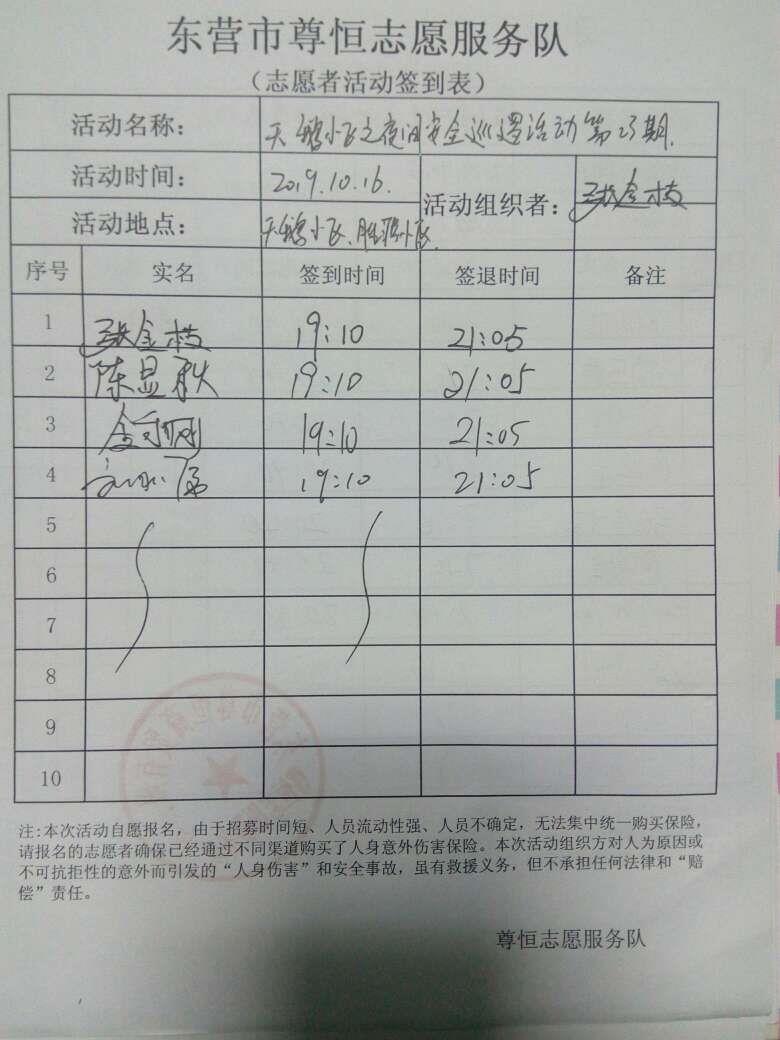 东营市尊恒志愿服务队
(志愿者活动签到表)
活动名称: 天鹅小区之夜间安全巡逻活动第23期.
活动时间: 2019.10.16. 活动组织者: 张金枝
活动地点: 天鹅小区、小区.
序号 实名 签到时间 签退时间 备注
1 张金枝 19:10 21:05
2 陈显秋 19:10 21:05
3 19:10 21:05
4 19:10 21:05
5
6
7
8
9
10
注:本次活动自愿报名，由于招募时间短、人员流动性强、人员不确定，无法集中统一购买保险，
请报名的志愿者确保己经通过不同渠道购买了人身意外伤害保险。本次活动组织方对人为原因或
不可抗拒性的意外而引发的“人身伤害”和安全事故，虽有救援义务，但不承担任何法律和“赔
偿”责任。
尊恒志愿服务队